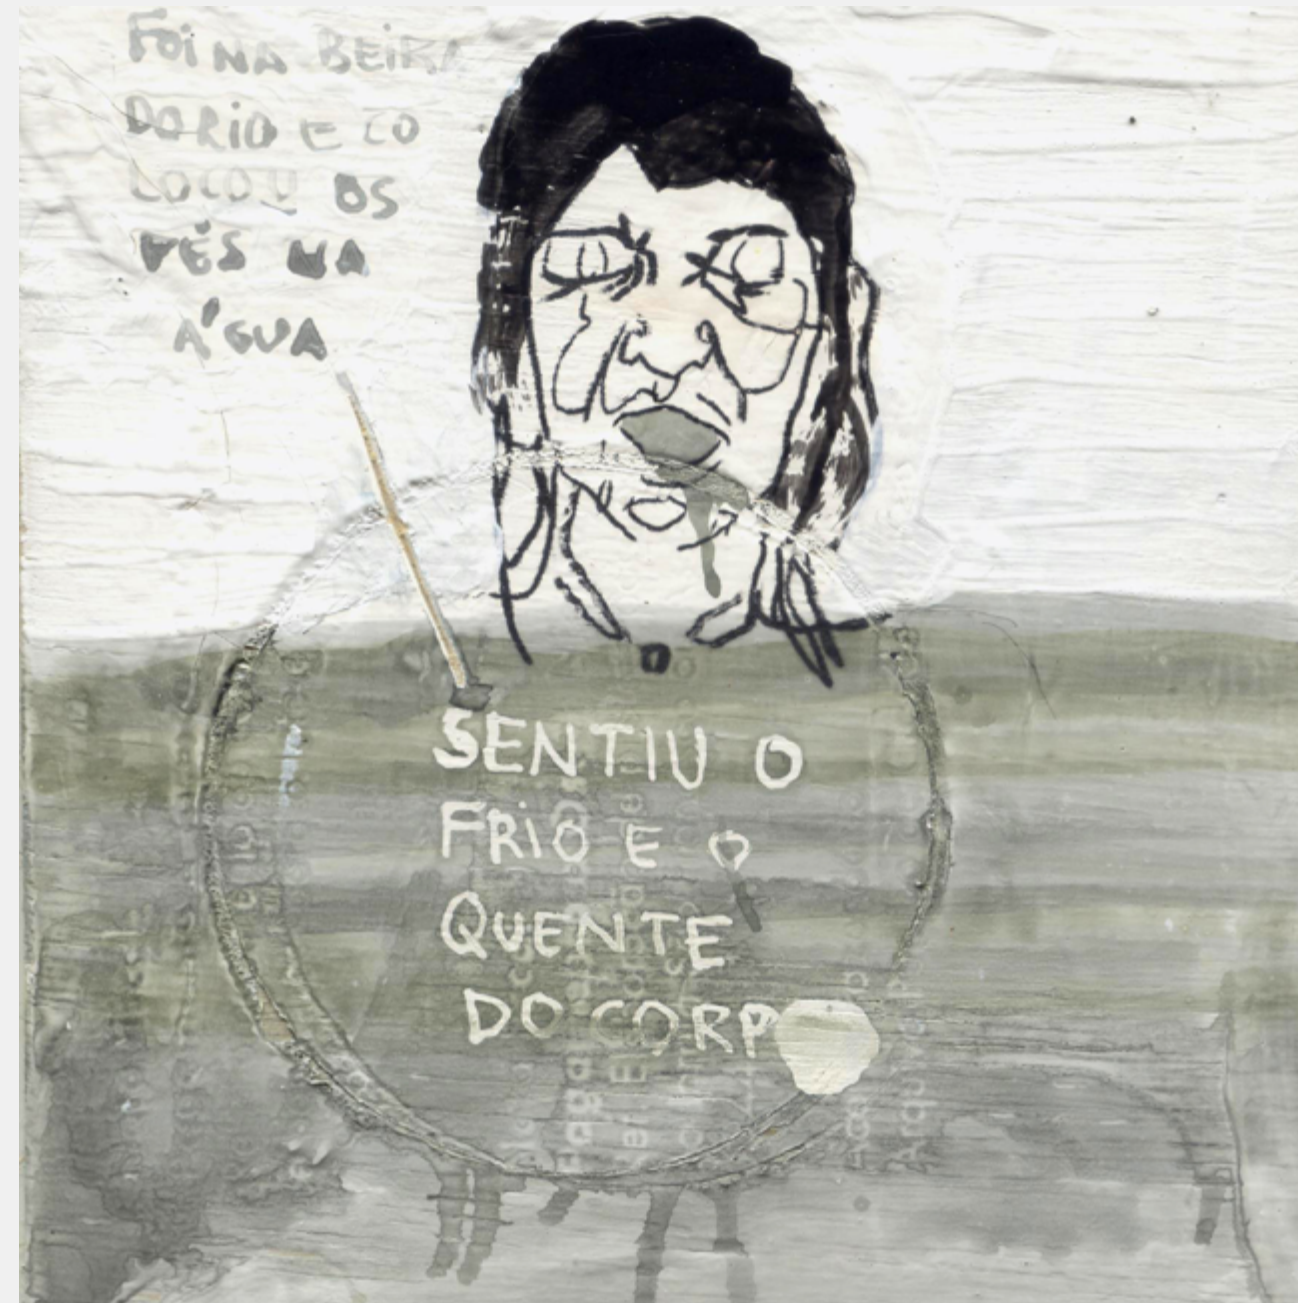 FOI NA BEIRA
DO RIO E CO
LOCOU OS
PÉS NA
ÁGUA
SENTIU O
FRIO E O
QUENTE
DO CORPO